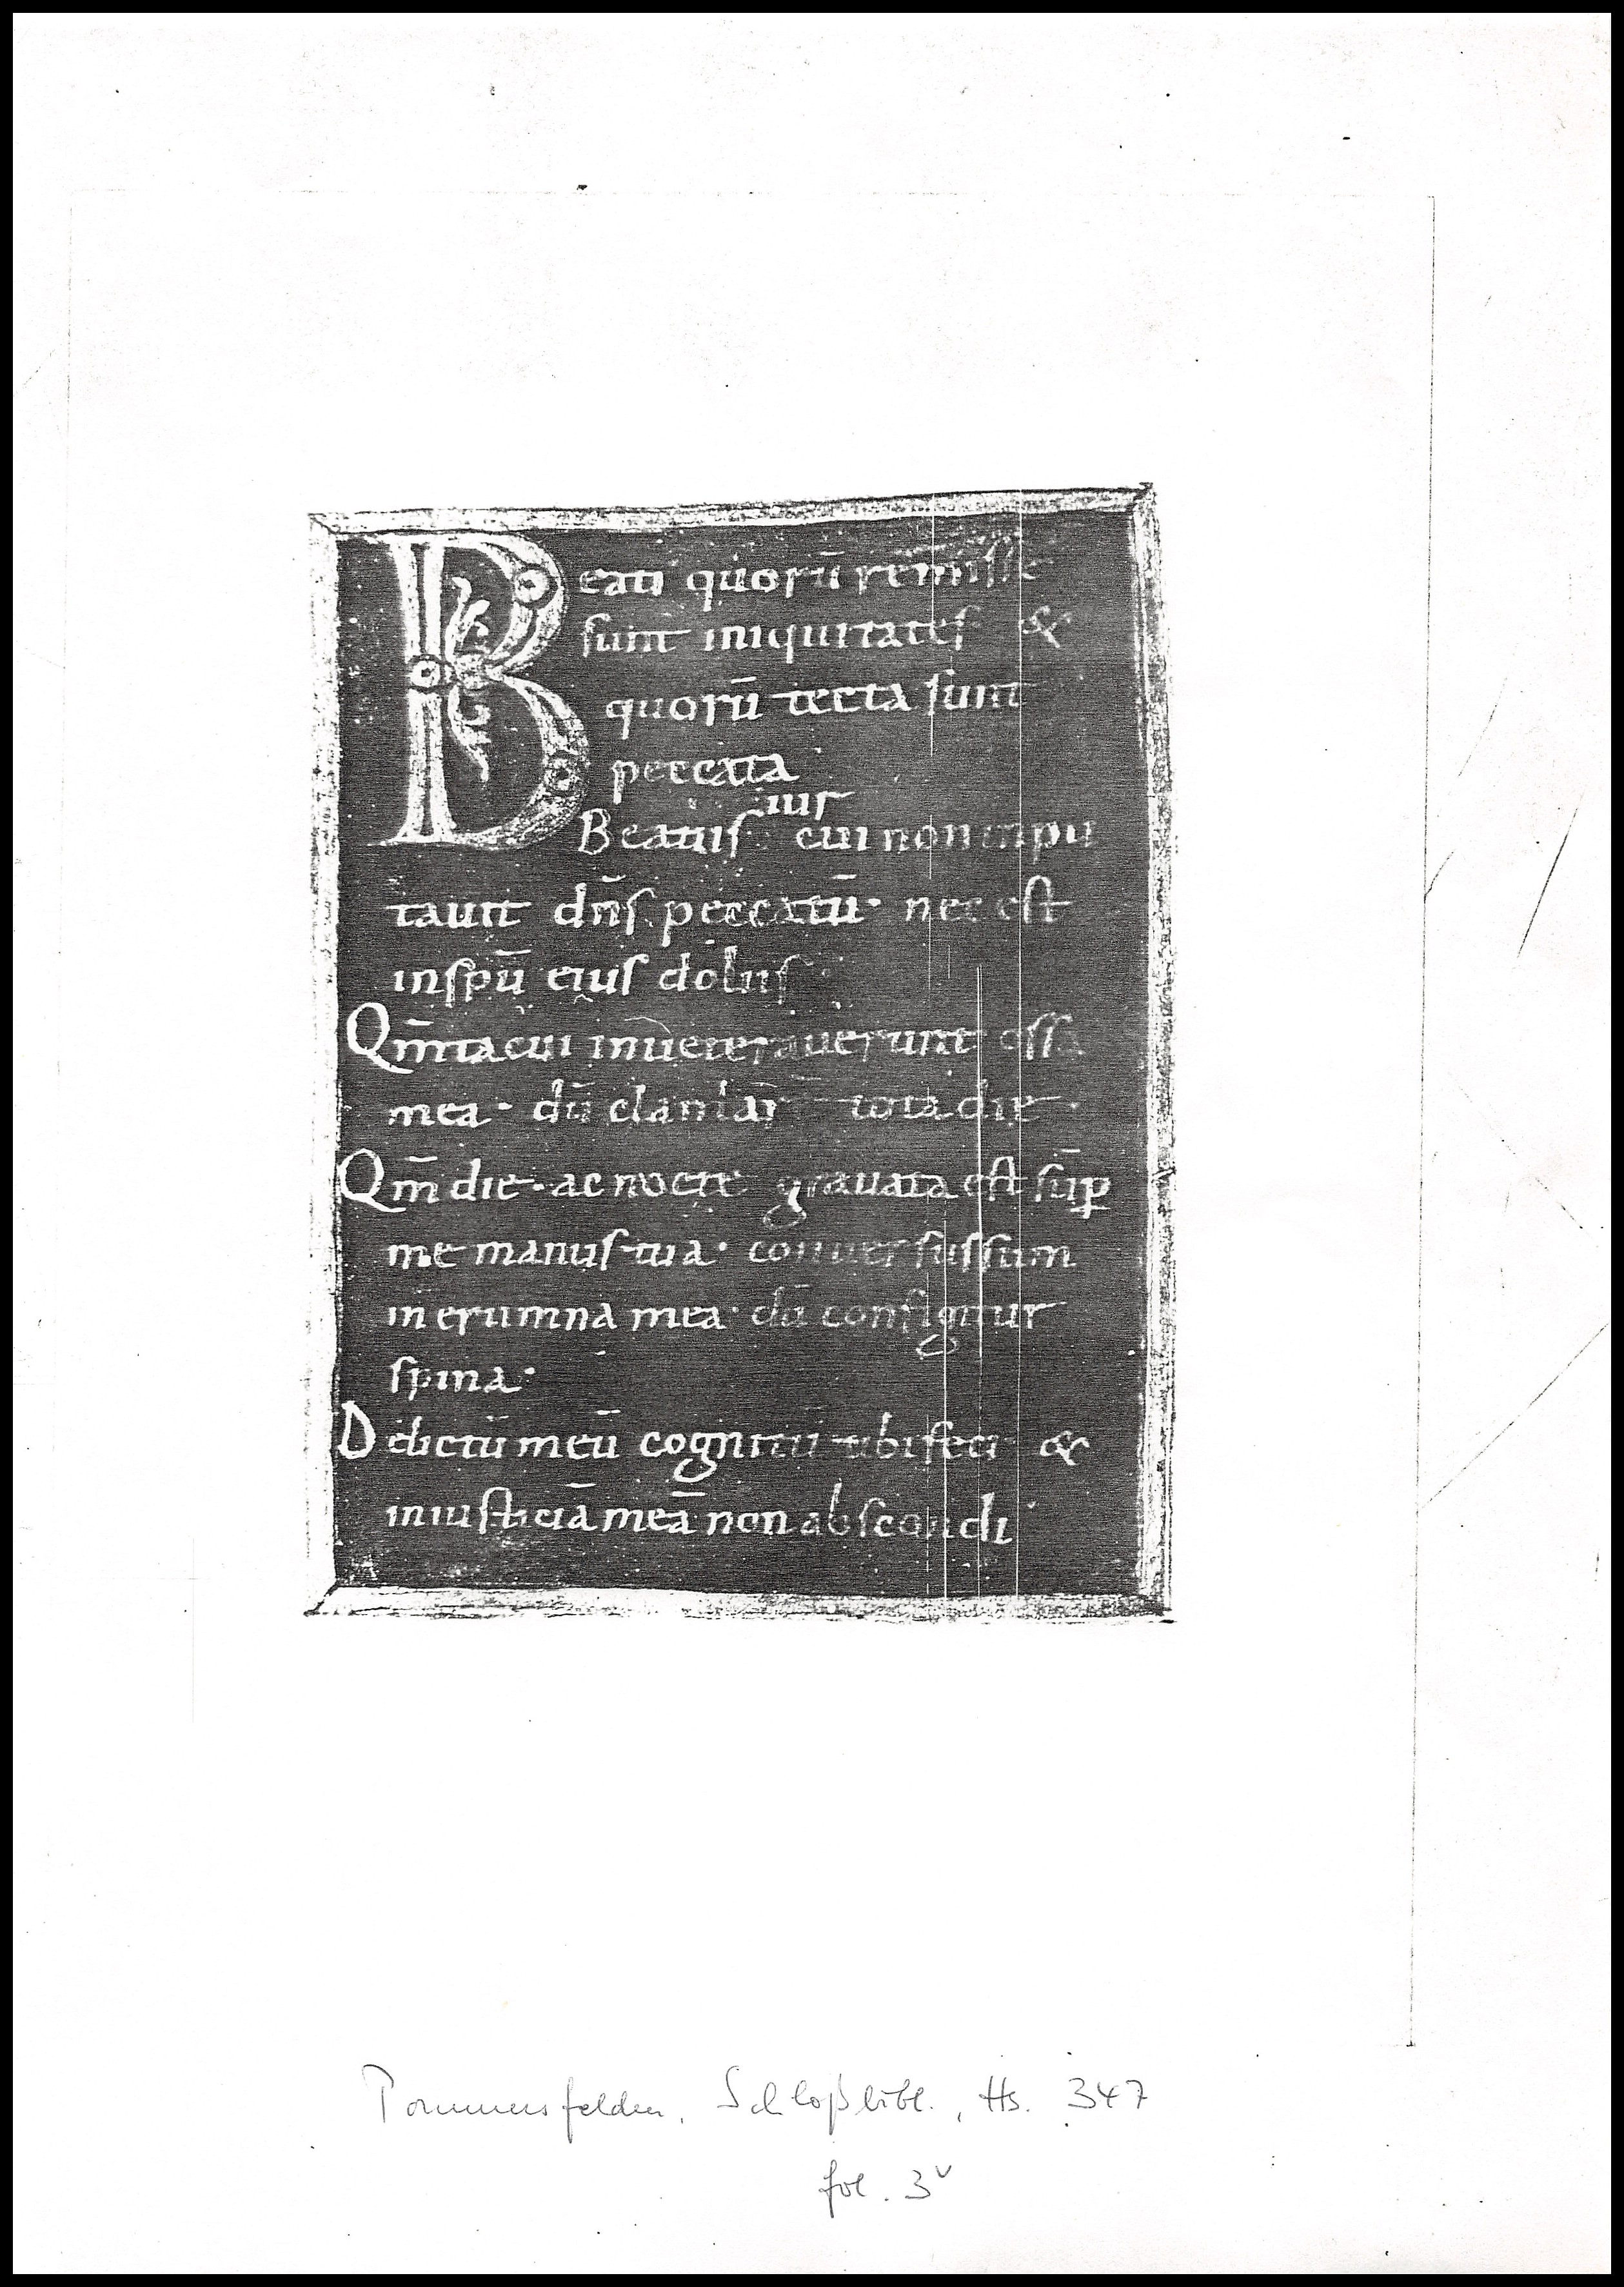 Beati quorū remisse
sunt iniquitates &
quorū tecta sunt
peccata
uir
Beatus cui non inpu
tauit dn̄s peccatū· nec est
in spū eius dolus
Qm̄ tacui inueterauerunt ossa
mea· dū clamar̄ tota die·
Qm̄ die· ac nocte grauata est sup̄
me manus tua· conuersus sum
in erumna mea· dū configitur
spina·
D dictū meū cognitū tibi feci &
iniusticiā meā non abscondi
Pommersfelden, Schloßbibl., Hs. 347
fol. 3v